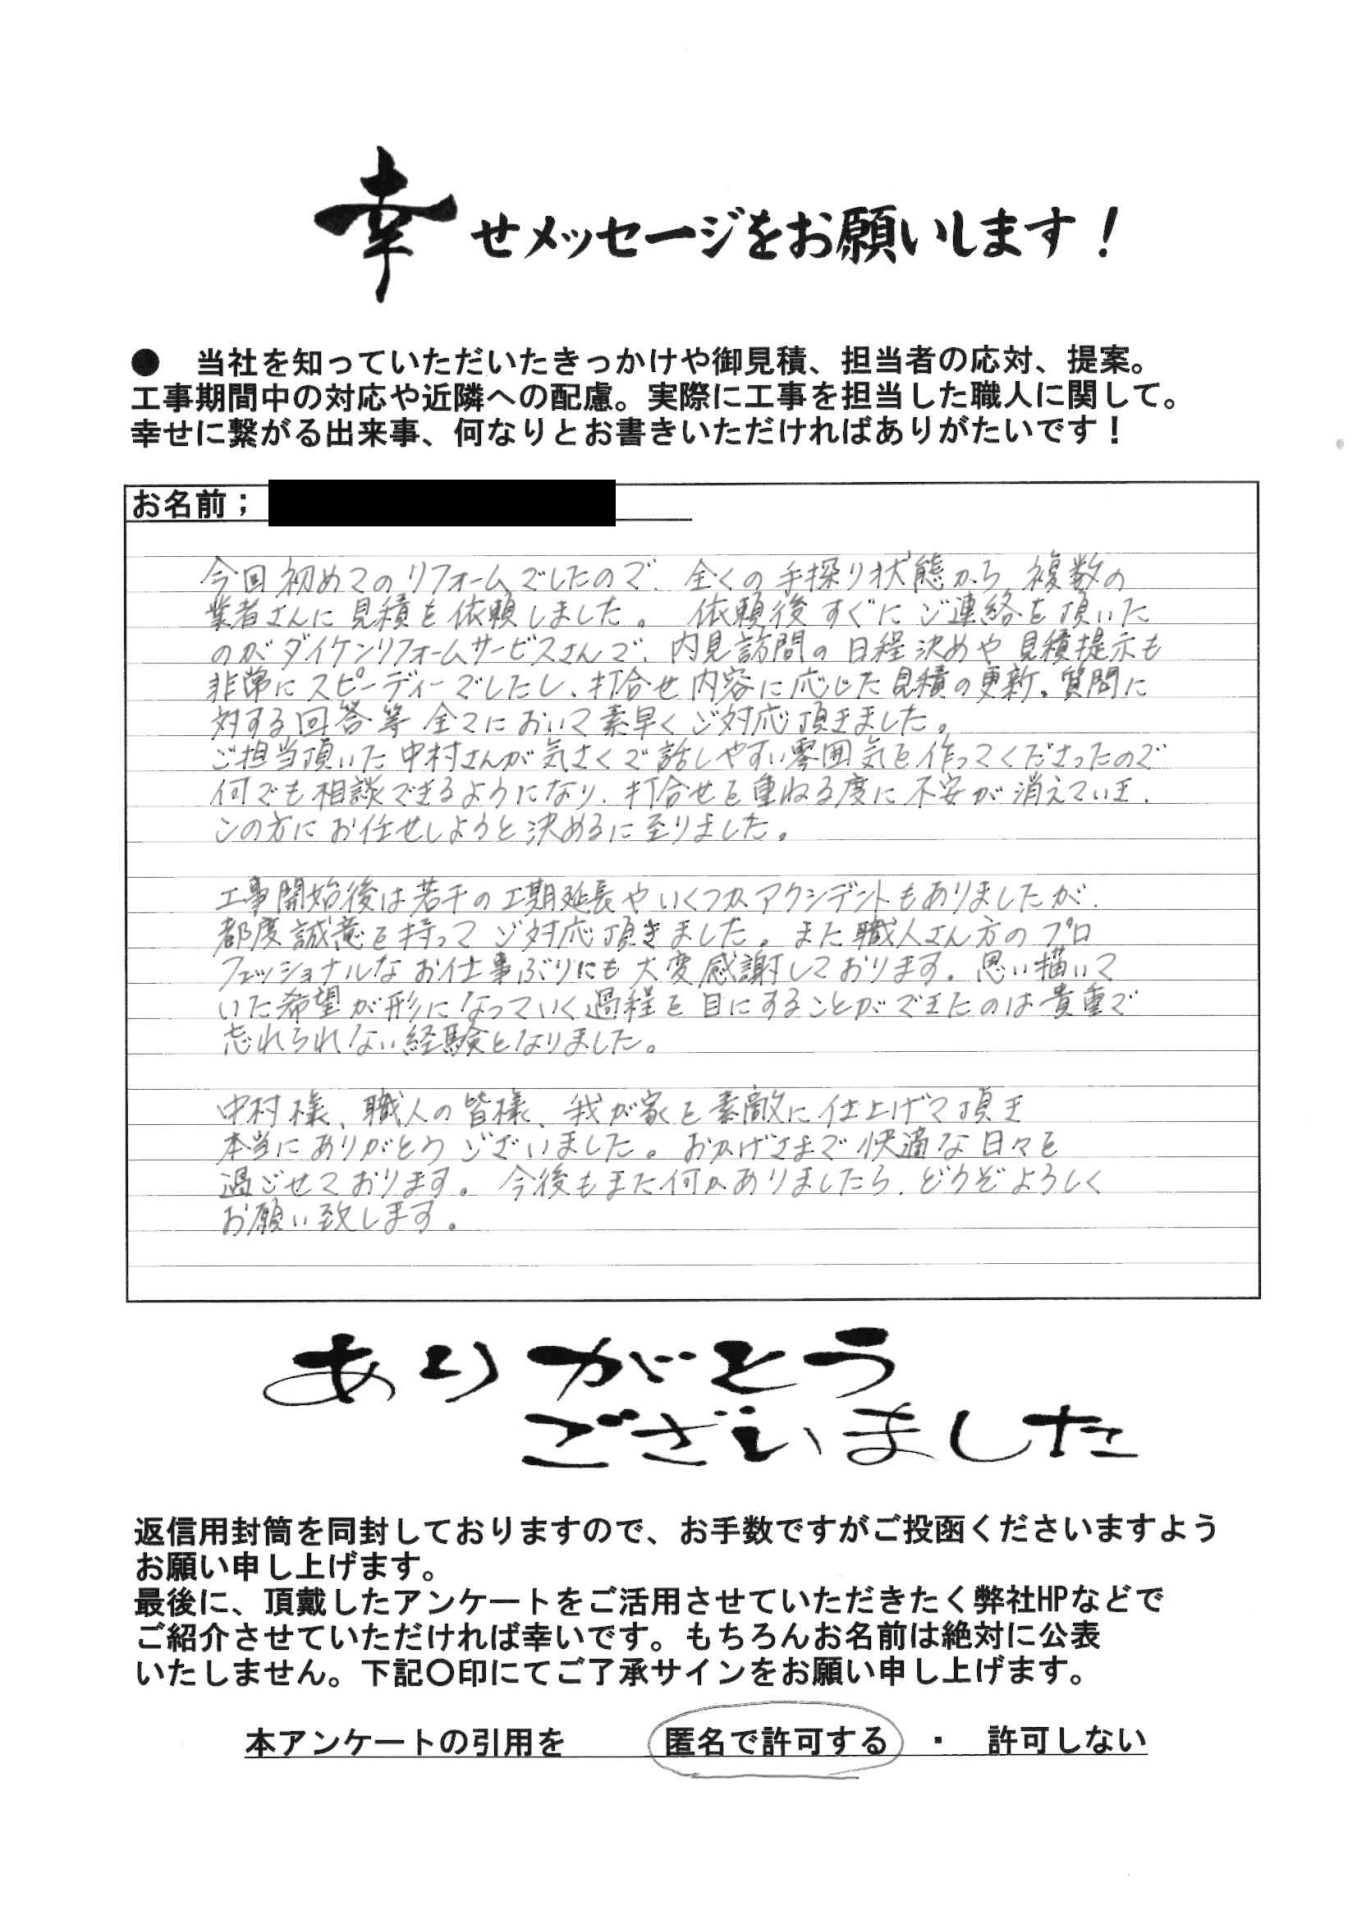 幸せメッセージをお願いします！
●　当社を知っていただいたきっかけや御見積、担当者の応対、提案。
工事期間中の対応や近隣への配慮。実際に工事を担当した職人に関して。
幸せに繋がる出来事、何なりとお書きいただければありがたいです！
お名前；
今回初めてのリフォームでしたので、全くの手探り状態から複数の
業者さんに見積を依頼しました。依頼後すぐにご連絡を頂いた
のがダイケンリフォームサービスさんで、内見訪問の日程決めや見積提示も
非常にスピーディーでしたし、打合せ内容に応じた見積の更新、質問に
対する回答等全てにおいて素早くご対応頂きました。
ご担当頂いた中村さんが気さくで話しやすい雰囲気を作ってくださったので
何でも相談できるようになり、打合せを重ねる度に不安が消えていき、
この方にお任せしようと決めるに至りました。
工事開始後は若干の工期延長やいくつかアクシデントもありましたが、
都度誠意を持ってご対応頂きました。また職人さん方のプロ
フェッショナルなお仕事ぶりにも大変感謝しております。思い描いて
いた希望が形になっていく過程を目にすることができたのは貴重で
忘れられない経験となりました。
中村様、職人の皆様、我が家を素敵に仕上げて頂き
本当にありがとうございました。おかげさまで快適な日々を
過ごせております。今後もまた何かありましたら、どうぞよろしく
お願い致します。
ありがとう
ございました
返信用封筒を同封しておりますので、お手数ですがご投函くださいますよう
お願い申し上げます。
最後に、頂戴したアンケートをご活用させていただきたく弊社HPなどで
ご紹介させていただければ幸いです。もちろんお名前は絶対に公表
いたしません。下記〇印にてご了承サインをお願い申し上げます。
本アンケートの引用を　匿名で許可する ・ 許可しない